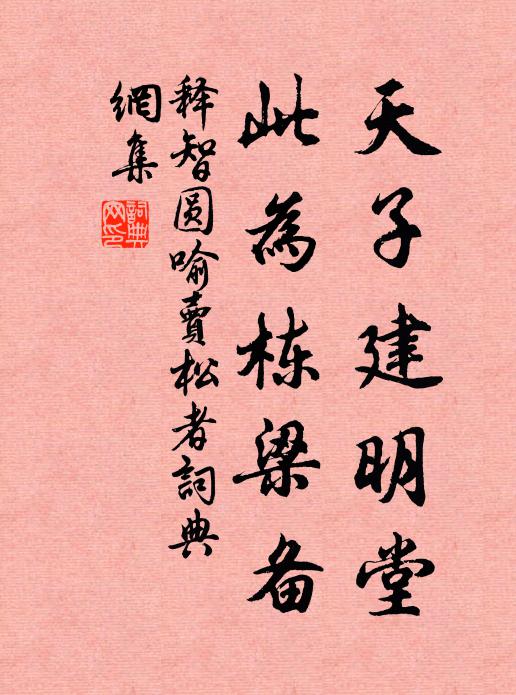 天子建明堂
此為栋梁备
释智圆喻賣松者詞典
網集
詞典
网印